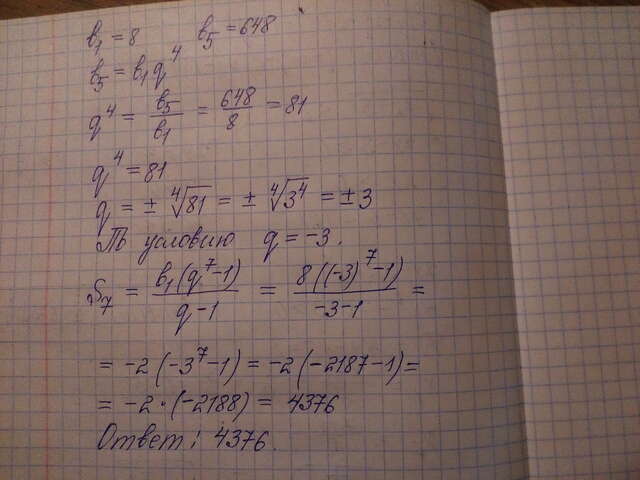 b₁ = 8 b₅ = 648
b₅ = b₁q⁴
q⁴ = b₅/b₁ = 648/8 = 81
q⁴ = 81
q = ± ⁴√81 = ± ⁴√3⁴ = ±3
По условию q = -3.
S₇ = b₁(q⁷-1)/q-1 = 8((-3)⁷-1)/-3-1 =
= -2(-3⁷-1) = -2(-2187-1) =
= -2·(-2188) = 4376
Ответ: 4376.